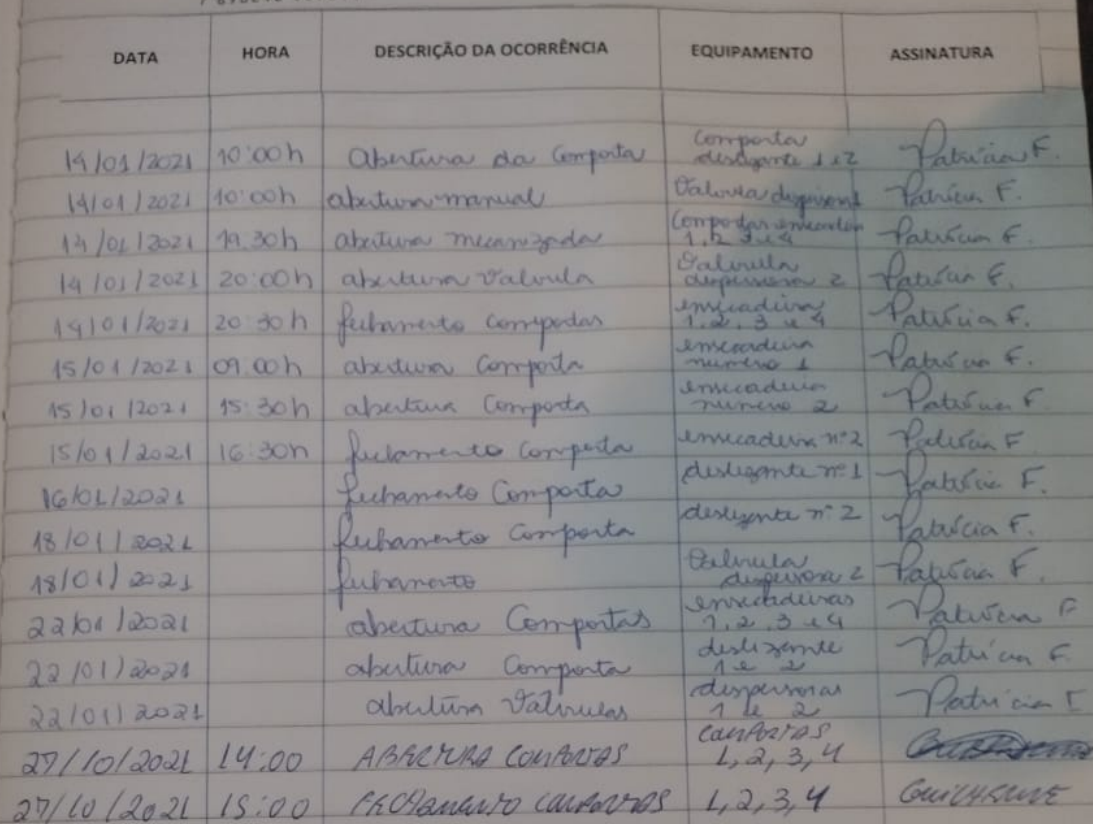 DATA HORA DESCRIÇÃO DA OCORRÊNCIA EQUIPAMENTO ASSINATURA
14/01/2021 10:00h abertura da Comporta Comporta deslizante 1 e 2 Patrícia F.
14/01/2021 10:00h abertura manual Valvula dispersora Patrícia F.
14/01/2021 19:30h abertura mecanizada Comportas ensecadeira 1, 2, 3 e 4 Patrícia F.
14/01/2021 20:00h abertura Valvula Valvula dispersora 2 Patrícia F.
14/01/2021 20:30h fechamento Comportas ensecadeira 1, 2, 3 e 4 Patrícia F.
15/01/2021 09:00h abertura Comporta ensecadeira número 1 Patrícia F.
15/01/2021 15:30h abertura Comporta ensecadeira número 2 Patrícia F.
15/01/2021 16:30h fechamento Comporta ensecadeira nº2 Patrícia F.
16/01/2021 fechamento Comporta deslizante nº 1 Patrícia F.
18/01/2021 fechamento Comporta deslizante nº 2 Patrícia F.
18/01/2021 fechamento Valvula dispersora 2 Patrícia F.
22/01/2021 abertura Comportas ensecadeiras 1, 2, 3 e 4 Patrícia F
22/01/2021 abertura Comporta deslizante 1 e 2 Patrícia F.
22/01/2021 abertura Valvulas dispersoras 1 e 2 Patrícia F
27/10/2021 14:00 ABERTURA COMPORTAS COMPORTAS 1, 2, 3, 4
27/10/2021 15:00 FECHAMENTO COMPORTAS 1, 2, 3, 4 GUILHERME